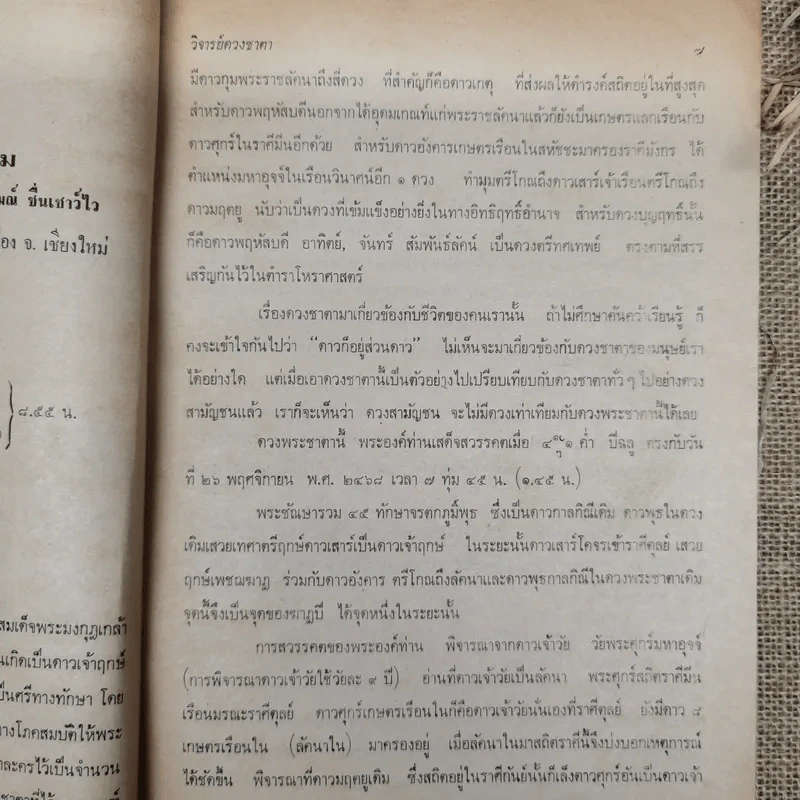 ม
มณ์ ชื่นเชาว์ไว
อง จ. เชียงใหม่
๘.๕๕ น.
สมเด็จพระมงกุฎเกล้า
นเกิดเป็นดาวเจ้าฤกษ์
ป็นศรีทางทักษา โดย
างโภคสมบัติให้พระ
าละครไว้เป็นจำนวน
วิจารย์ดวงชาตา
๗
มีดาวกุมพระราชลัคนาถึงสี่ดวง ที่สำคัญก็คือดาวเกตุ ที่ส่งผลให้ดำรงค์สถิตอยู่ในที่สูงสุด
สำหรับดาวพฤหัสบดีนอกจากได้อุดมเกณฑ์แก่พระราชลัคนาแล้วก็ยังเป็นเกษตรแลกเรือนกับ
ดาวศุกร์ในราศีมีนอีกด้วย สำหรับดาวอังคารเกษตรเรือนในสหัชชะมาครองราศีมังกร ได้
ตำแหน่งมหาอุจจ์ในเรือนวินาศน์อีก ๑ ดวง ทำมุมตรีโกณถึงดาวเสาร์เจ้าเรือนตรีโกณถึง
ดาวมฤตยู นับว่าเป็นดวงที่เข้มแข็งอย่างยิ่งในทางอิทธิฤทธิ์อำนาจ สำหรับดวงบุญฤทธิ์นั้น
ก็คือดาวพฤหัสบดี อาทิตย์, จันทร์ สัมพันธ์ลัคน์ เป็นดวงตรีทศเทพย์ ตรงตามที่สรร
เสริญกันไว้ในตำราโหราศาสตร์
เรื่องดวงชาตามาเกี่ยวข้องกับชีวิตของคนเรานั้น ถ้าไม่ศึกษาค้นคว้าเรียนรู้ ก็
คงจะเข้าใจกันไปว่า "ดาวก็อยู่ส่วนดาว" ไม่เห็นจะมาเกี่ยวข้องกับดวงชาตาของมนุษย์เรา
ได้อย่างใด แต่เมื่อเอาดวงชาตานี้เป็นตัวอย่างไปเปรียบเทียบกับดวงชาตาทั่ว ๆ ไปอย่างดวง
สามัญชนแล้ว เราก็จะเห็นว่า ดวงสามัญชน จะไม่มีดวงเท่าเทียมกับดวงพระชาตานี้ได้เลย
ดวงพระชาตานี้ พระองค์ท่านเสด็จสวรรคตเมื่อ ค่ำ ปีฉลู ตรงกับวัน
ที่ ๒๖ พฤศจิกายน พ.ศ. ๒๔๖๘ เวลา ๗ ทุ่ม ๔๕ น. (๑.๔๕ น.)
พระชัณษารวม ๔๕ ทักษาจรตกภูมิ์พุธ ซึ่งเป็นดาวกาลกิณีเดิม ดาวพุธในดวง
เดิมเสวยเทศาตรีฤกษ์ดาวเสาร์เป็นดาวเจ้าฤกษ์ ในระยะนั้นดาวเสาร์โคจรเข้าราศีตุลย์ เสวย
ฤกษ์เพชฌฆาฎ ร่วมกับดาวอังคาร ตรีโกณถึงลัคนาและดาวพุธกาลกิณีในดวงพระชาตาเดิม
จุดนี้จึงเป็นจุดของฆาฎปี ได้จุดหนึ่งในระยะนั้น
การสวรรคตของพระองค์ท่าน พิจารณาจากดาวเจ้าวัย วัยพระศุกร์มหาอุจจ์
(การพิจารณาดาวเจ้าวัยใช้วัยละ ๙ ปี) อ่านที่ดาวเจ้าวัยเป็นลัคนา พระศุกร์สถิตราศีมีน
เรือนมรณะราศีตุลย์ ดาวศุกร์เกษตรเรือนในก็คือดาวเจ้าวัยนั่นเองที่ราศีตุลย์ ยังมีดาว ๘
เกษตรเรือนใน (ลัคนาใน) มาครองอยู่ เมื่อลัคนาในมาสถิตราศีนี้จึงบ่งบอกเหตุการณ์
ได้ชัดขึ้น พิจารณาที่ดาวมฤตยูเดิม ซึ่งสถิตอยู่ในราศีกันย์นั้นก็เล็งดาวศุกร์อันเป็นดาวเจ้า